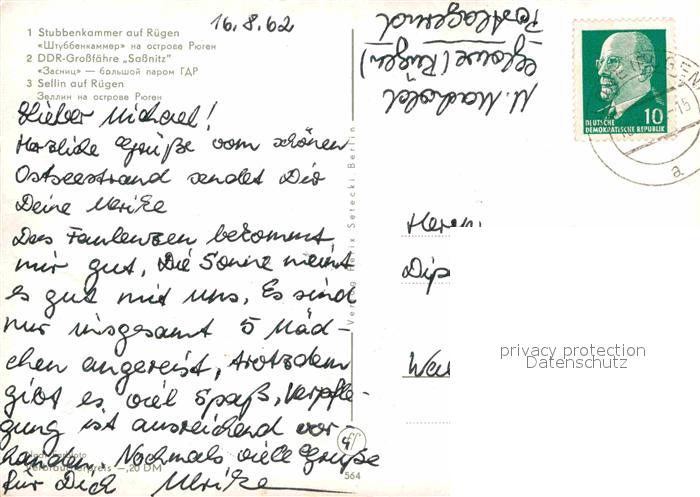 16.8.62
1 Stubbenkammer auf Rügen
«Штуббенкаммер» на острове Рюген
2 DDR-Großfähre „Saßnitz"
«Засниц» — большой паром ГДР
3 Sellin auf Rügen
Зеллин на острове Рюген
Lieber Michael!
Herzliche Grüße vom schönen
Ostseestrand sendet Dir
Deine Ulrike
Das Faulenzen bekommt
mir gut. Die Sonne meint
es gut mit uns. Es sind
nur insgesamt 5 Mäd-
chen angereist, trotzdem
gibt es viel Spaß, Verpfle-
gung ist ausreichend vor-
handen. Nochmals viele Grüße
für Dich Ulrike
Verbraucherpreis —,20 DM
564
Setecki, Berlin
Glowe (Rügen)
Postlagernd
10
DEUTSCHE
DEMOKRATISCHE REPUBLIK
a
Herrn
Dip
privacy protection
Datenschutz